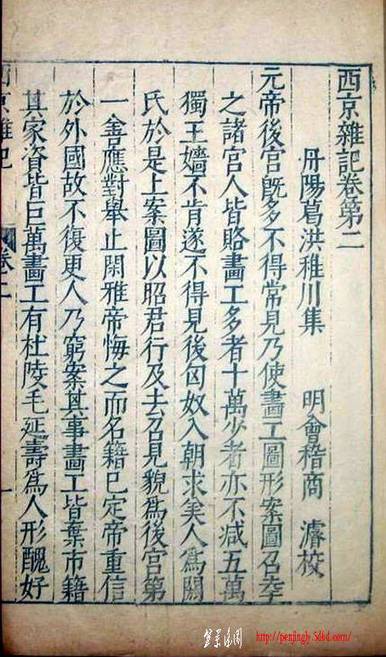 西京雜記卷第二
丹陽葛洪稚川集 明會稽商濬校
元帝後宮旣多不得常見乃使畫工圖形案圖召幸
之諸宮人皆賂畫工多者十萬少者亦不减五萬
獨王嬙不肯遂不得見後匈奴入朝求美人爲閼
氏於是上案圖以昭君行及去召見貌爲後宮第
一善應對舉止閑雅帝悔之而名籍已定帝重信
於外國故不復更人乃窮案其事畫工皆棄市籍
其家資皆巨萬畫工有杜陵毛延壽爲人形醜好
西京雜記 卷二 一
http://penjingly.5d6d.com/